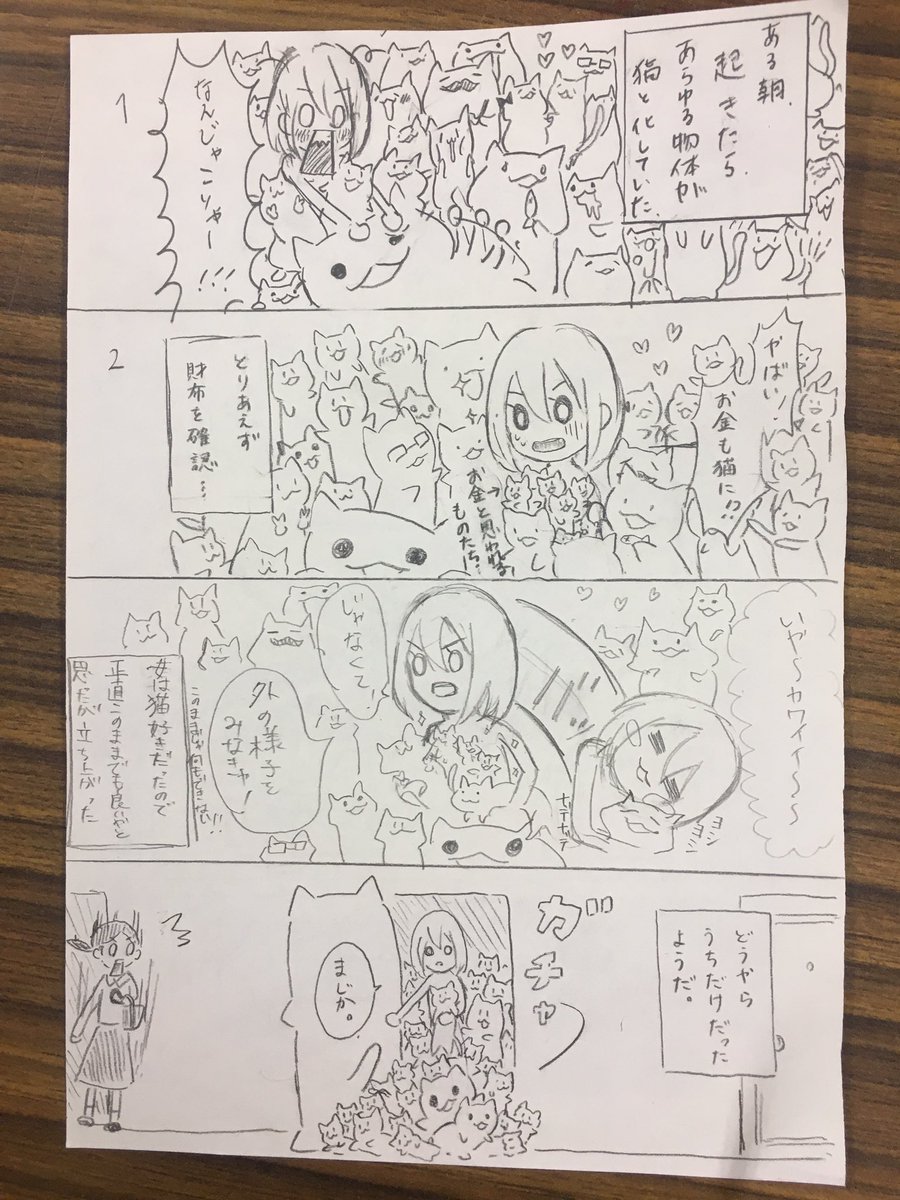 ある朝、
起きたら、
あらゆる物体が
猫と化していた。
なんじゃこりゃー!!!
1
やばい!
お金も猫に!?
お金と思われる
ものたち…
とりあえず
財布を確認…
2
いや〜カワイイ〜〜
ヨシ
ヨシ
ナデナデ
じゃなくて!
外の様子を
みなきゃ!
このままじゃ何もできない!!
女は猫好きだったので
正直このままでも良いやと
思たが立ち上がった
どうやら
うちだけだった
ようだ。
ガチャッ
まじか。